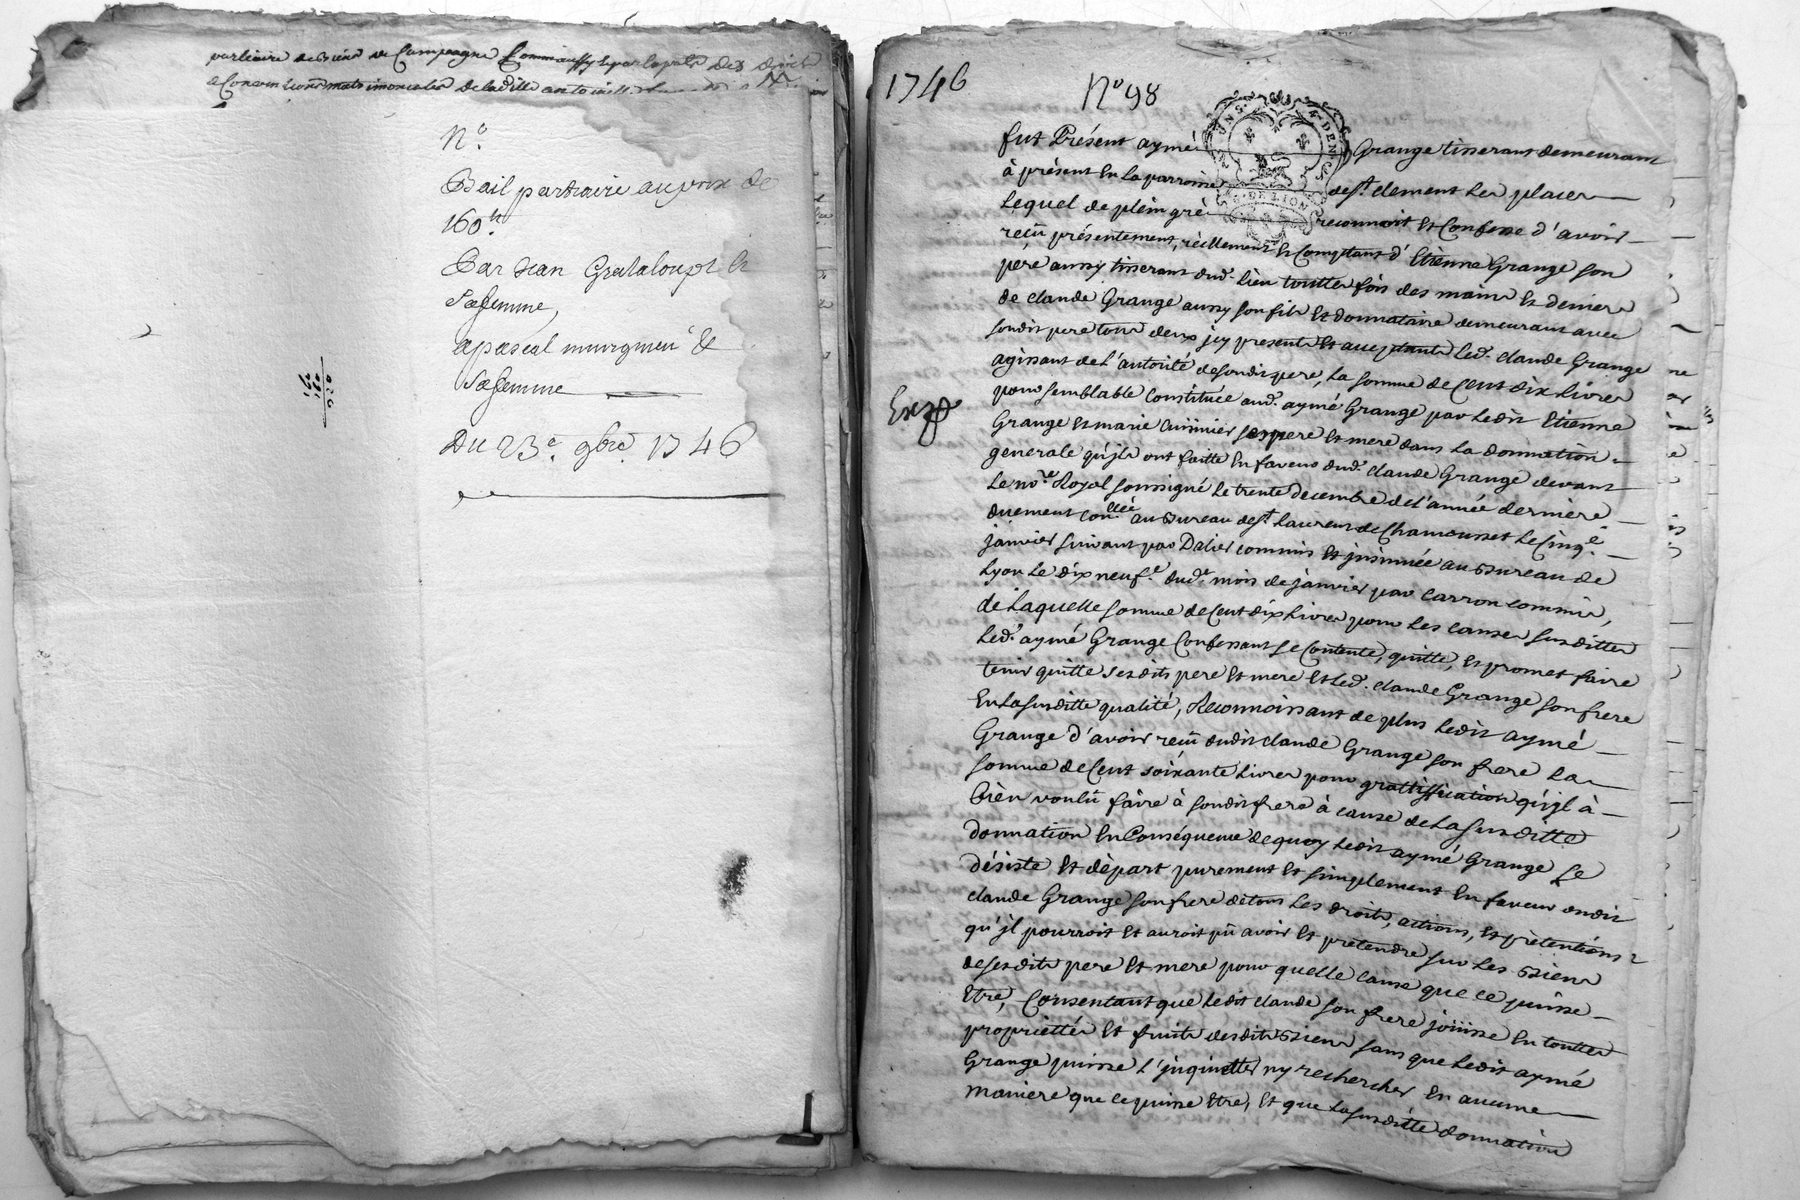 partiaire de biens de Campagne
N.°
Bail partiaire au prix de
160.ᵗᵗ
Par Jean Grataloupt Et
Sa femme,
a pascal
Sa femme
Du 23.ᵉ 9bre. 1746
1746
N° 98
fut Présent aymé Grange tisserant demeurant
à présent En la parroisse de sᵗ. clement les places
Lequel de plein gré reconnoit Et Confesse d'avoir
reçû présentement, réellement Et Comptant d'Etienne Grange son
pere aussy tisserant dud. lieu toutte fois des mains Et deniers
de claude Grange aussy son fils Et donnataire demeurant avec
sondit pere tous deux jcy presents Et acceptants Led. claude Grange
agissant de L'autorité de sondit pere, La somme de Cent dix Livres
pour semblable Constituée aud. aymé Grange par Ledit Etienne
Exᵖᵉ
Grange Et marie Cuisinier ses pere Et mere dans La donnation
generale qu'jls ont faitte En faveur dud. claude Grange devant
Le noʳᵉ. Royal soussigné Le trente decembre de L'année derniere
duement conᵗʳôllée au Bureau de sᵗ Laurent de Chamousset Le Cinqᵉ
janvier suivant par Dalier commis Et jnsinuée au Bureau de
Lyon Le dix neufᵉ. dud. mois de janvier par Carron commis,
de Laquelle somme de Cent dix Livres pour Les causes susdittes
Led. aymé Grange Confessant se Contente, quitte, Et promet faire
tenir quitte sesdits pere Et mere Et Led. claude Grange son frere
En La susditte qualité, Reconnoissant de plus Ledit aymé
Grange d'avoir reçû dudit claude Grange son frere La
somme de Cent soixante Livres pour grattiffication qu'jl à
bien voulû faire à sondit frere à cause de La susditte
donnation En Conséquence de quoy Ledit aymé Grange se
désiste Et départ purement Et simplement En faveur dudit
claude Grange son frere de tous Les droits, actions, Et prétentions
qu'jl pourroit Et auroit pû avoir Et pretendre sur Les Biens
de sesdits pere Et mere pour quelle cause que ce puisse
Etre, Consentant que Ledit claude son frere joüisse En touttes
proprietés Et fruits desdits Biens sans que Ledit aymé
Grange puisse L'jnquietter ny rechercher En aucune
maniere que ce puisse Etre, Et que La susditte donnation